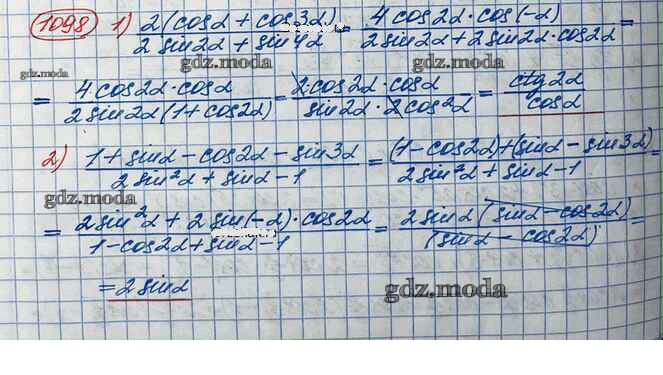 1098 1) 2(cosα + cos3α) / 2 sin2α + sin4α = 4 cos2α · cos(-α) / 2 sin2α + 2 sin2α · cos2α =
gdz.moda gdz.moda
= 4 cos2α · cosα / 2 sin2α (1 + cos2α) = 2 cos2α · cosα / sin2α · 2 cos²α = ctg2α / cosα
2) 1 + sinα - cos2α - sin3α / 2 sin²α + sinα - 1 = (1 - cos2α) + (sinα - sin3α) / 2 sin²α + sinα - 1 =
gdz.moda
= 2 sin²α + 2 sin(-α) · cos2α / 1 - cos2α + sinα - 1 = 2 sinα (sinα - cos2α) / (sinα - cos2α) =
= 2 sinα
gdz.moda